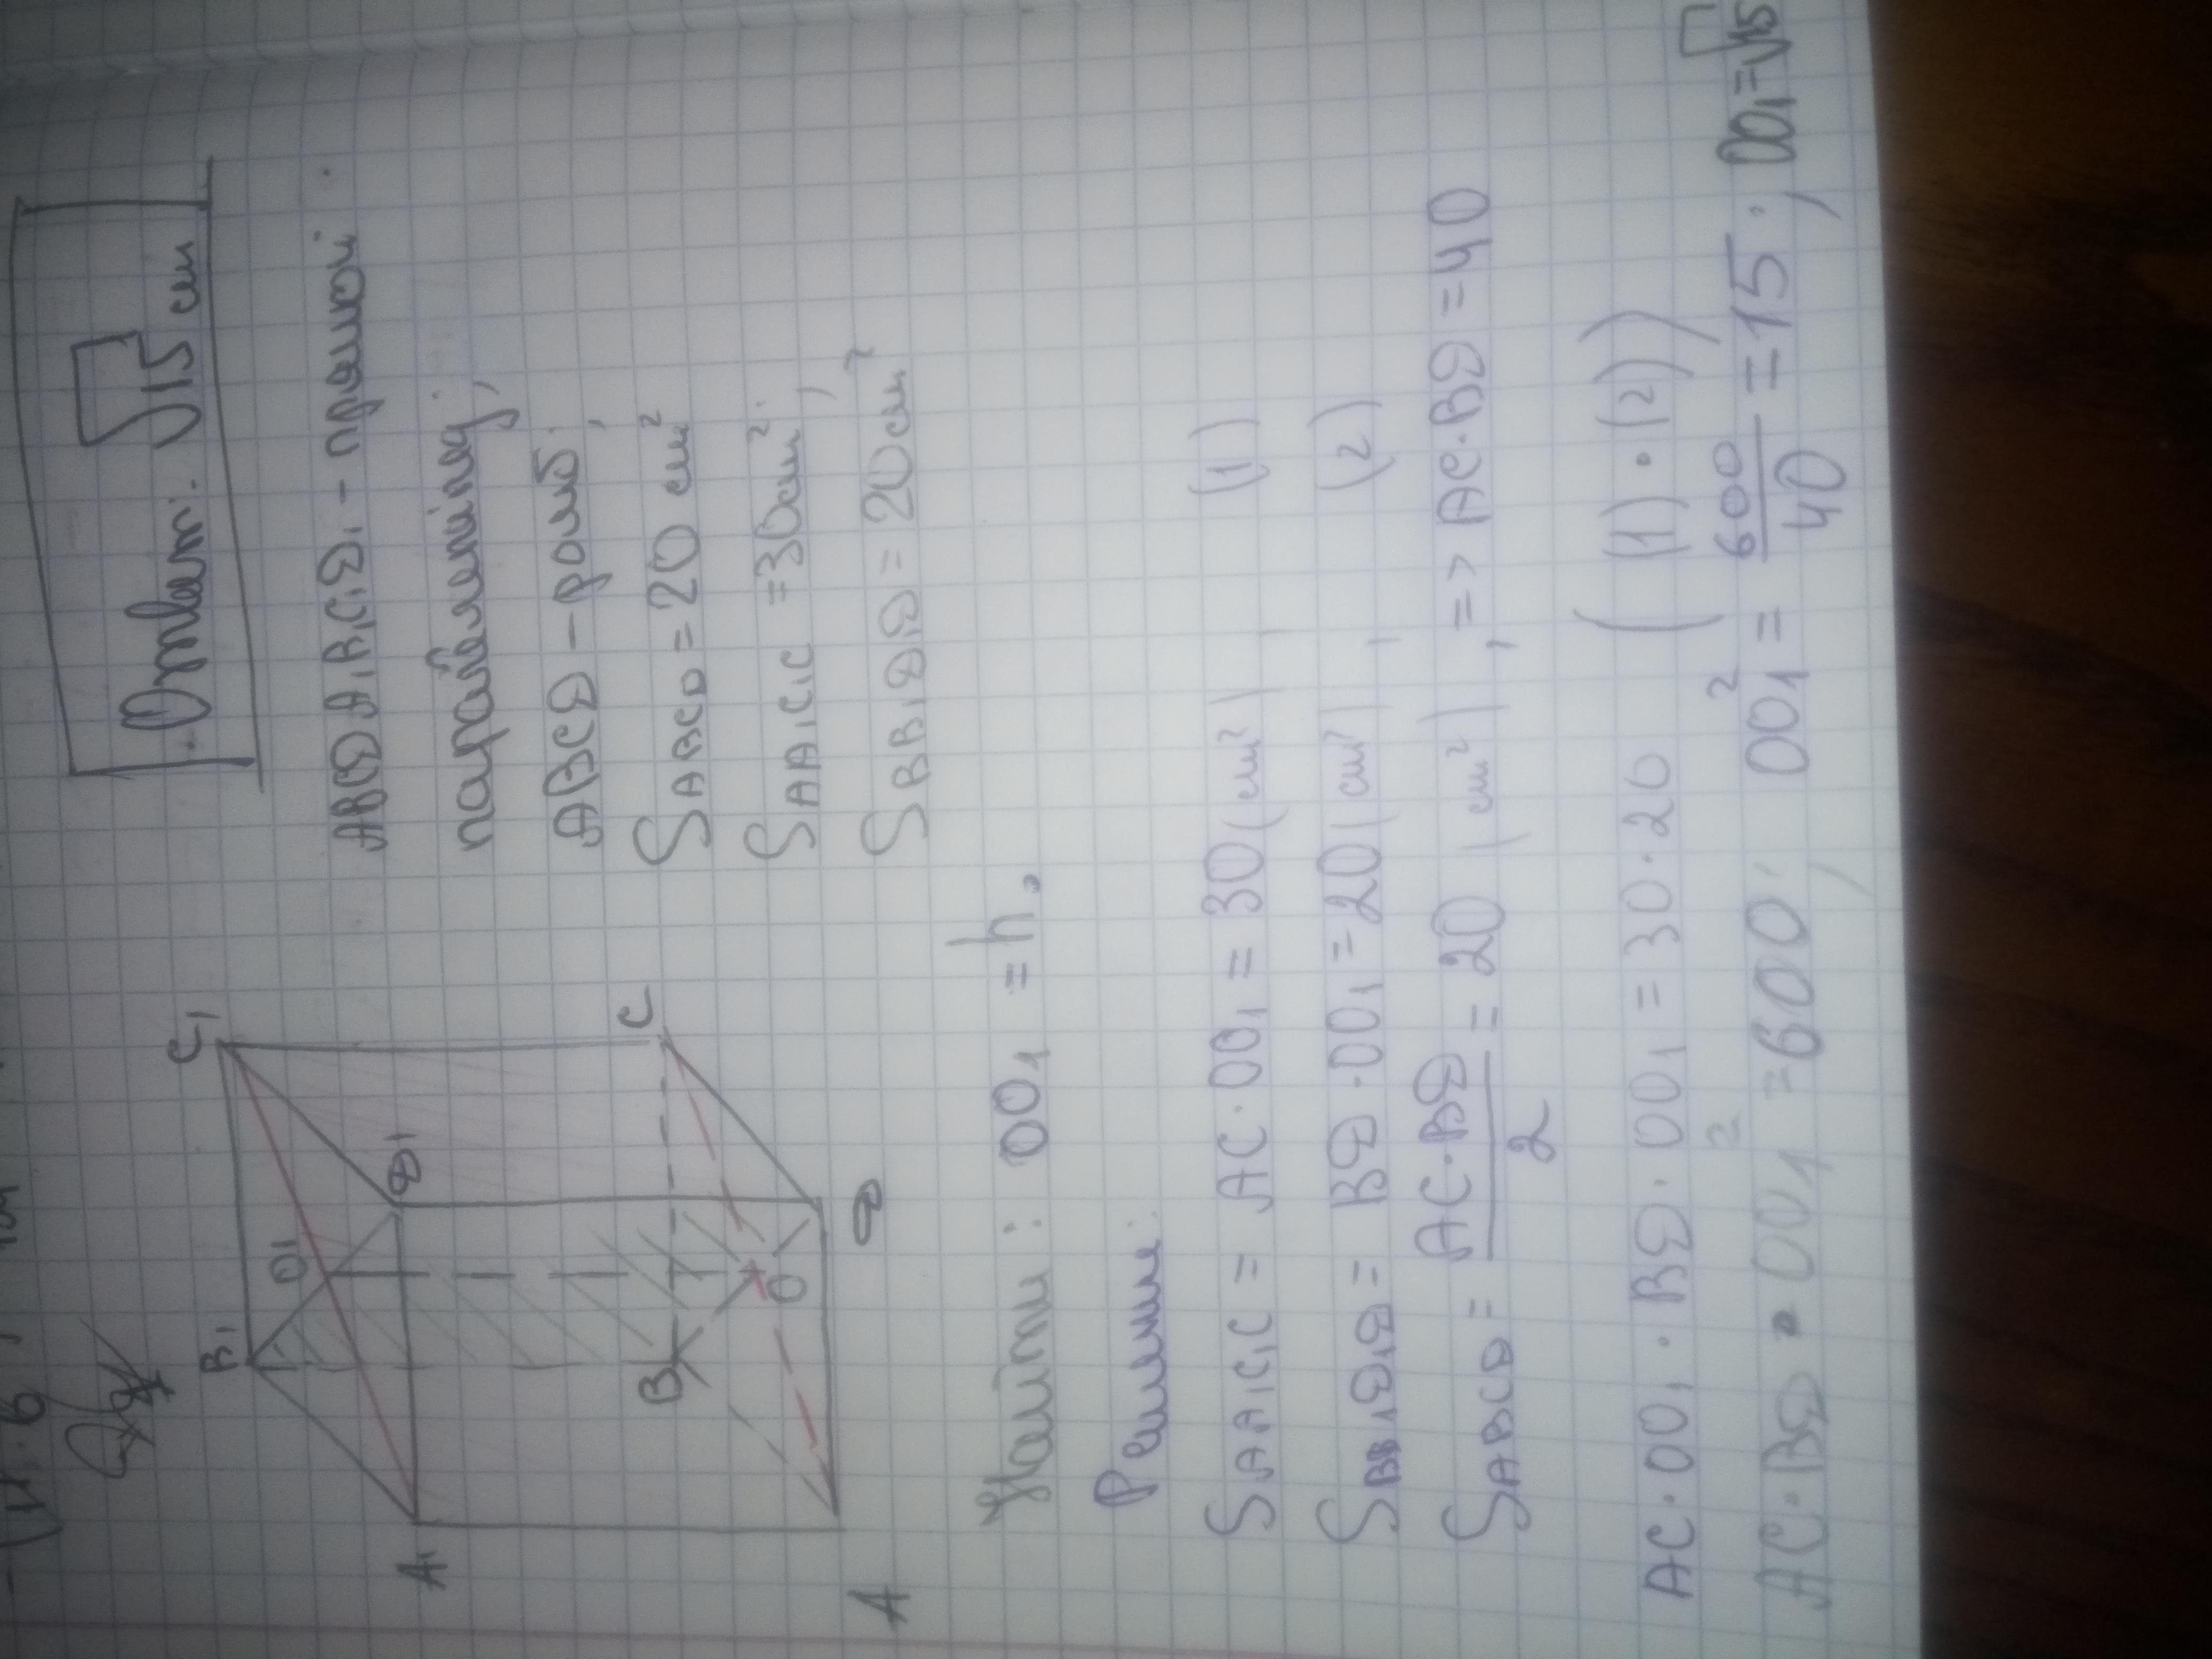 Ответ: √15 см
C1
B1
O1
D1
A1
C
B
O
D
A
ABCDA1B1C1D1 - прямой
параллелепипед;
ABCD - ромб;
SABCD = 20 см²
SAA1C1C = 30 см²;
SBB1D1D = 20 см²
Найти: OO1 = h.
Решение:
SAA1C1C = AC · OO1 = 30 (см²) (1)
SBB1D1D = BD · OO1 = 20 (см²), (2)
SABCD = AC·BD/2 = 20 (см²), => AC·BD = 40
AC · OO1 · BD · OO1 = 30 · 20 ((1) · (2))
AC · BD · OO1² = 600; OO1² = 600/40 = 15; OO1 = √15